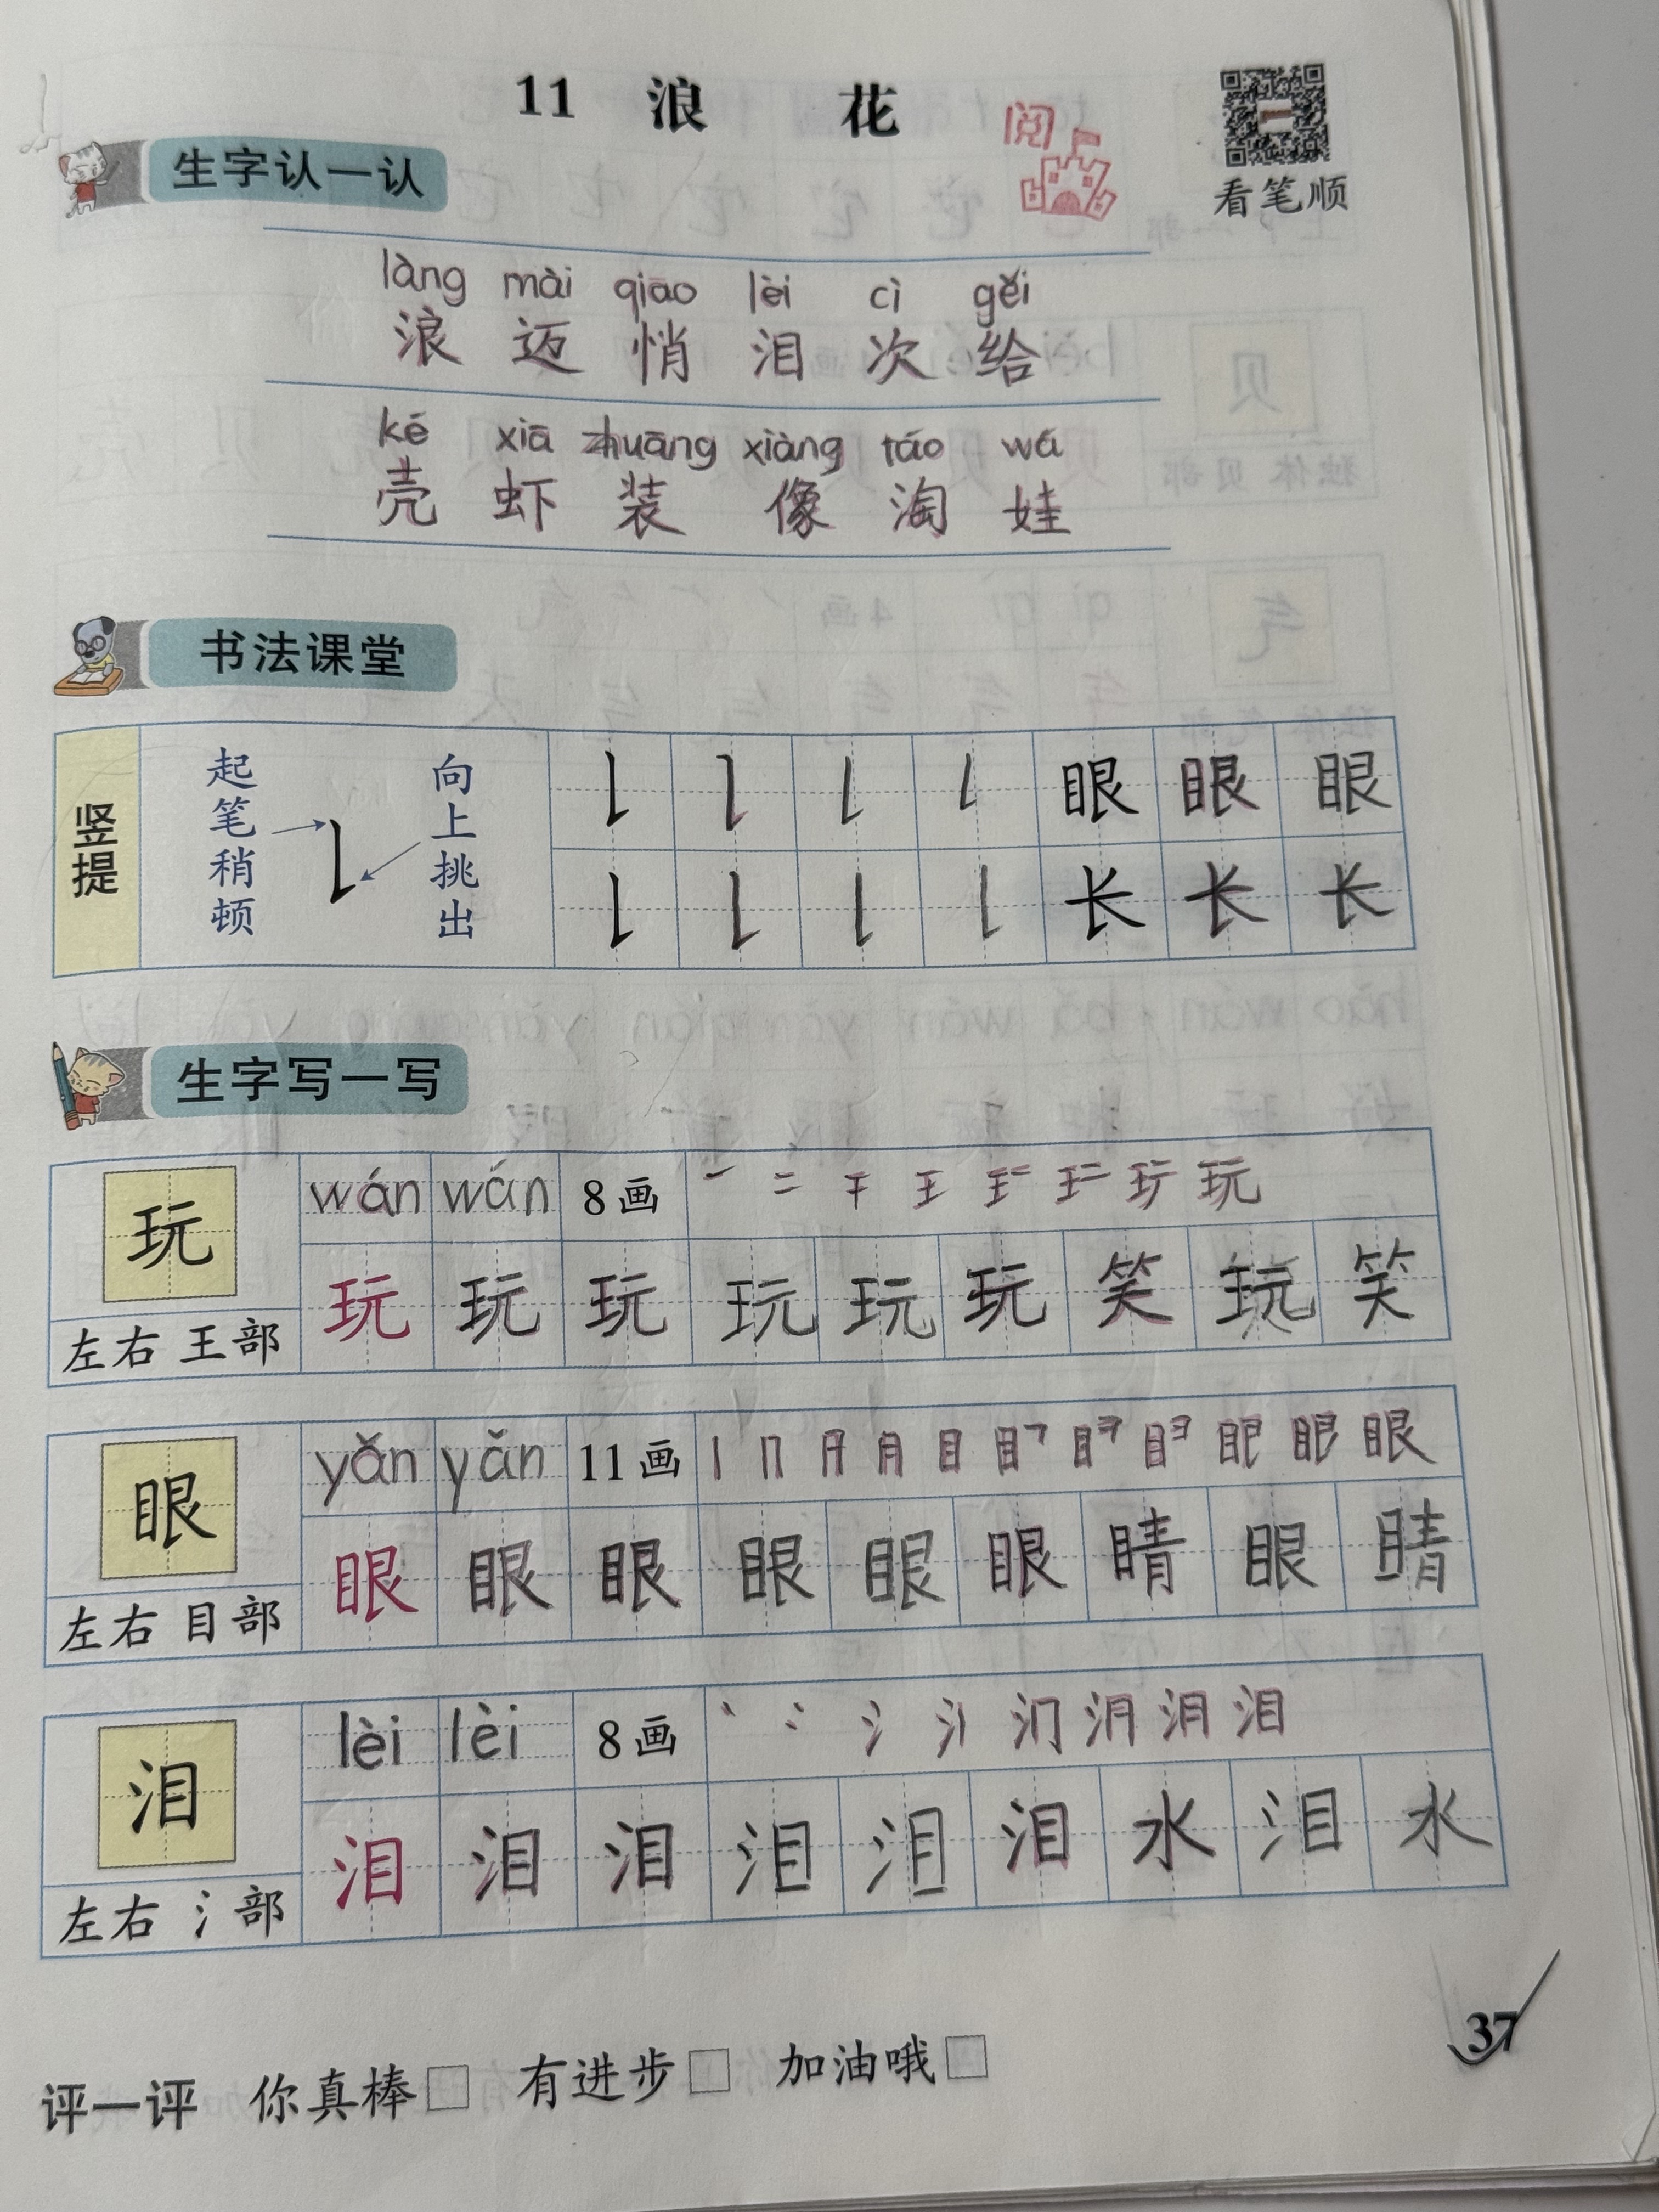 11 浪 花
阅
看笔顺
生字认一认
làng mài qiāo lèi cì gěi
浪 迈 悄 泪 次 给
ké xiā zhuāng xiàng táo wá
壳 虾 装 像 淘 娃
书法课堂
竖提
起笔稍顿
向上挑出
眼 眼 眼
长 长 长
生字写一写
玩
左右 王部
wán wán 8画 一 二 千 王 玩
玩 玩 玩 玩 玩 玩 笑 玩 笑
眼
左右 目部
yǎn yǎn 11画 丨 冂 月 月 目 眼
眼 眼 眼 眼 眼 眼 睛 眼 睛
泪
左右 氵部
lèi lèi 8画 丶 冫 氵 泪
泪 泪 泪 泪 泪 泪 水 泪 水
评一评 你真棒□ 有进步□ 加油哦□
37